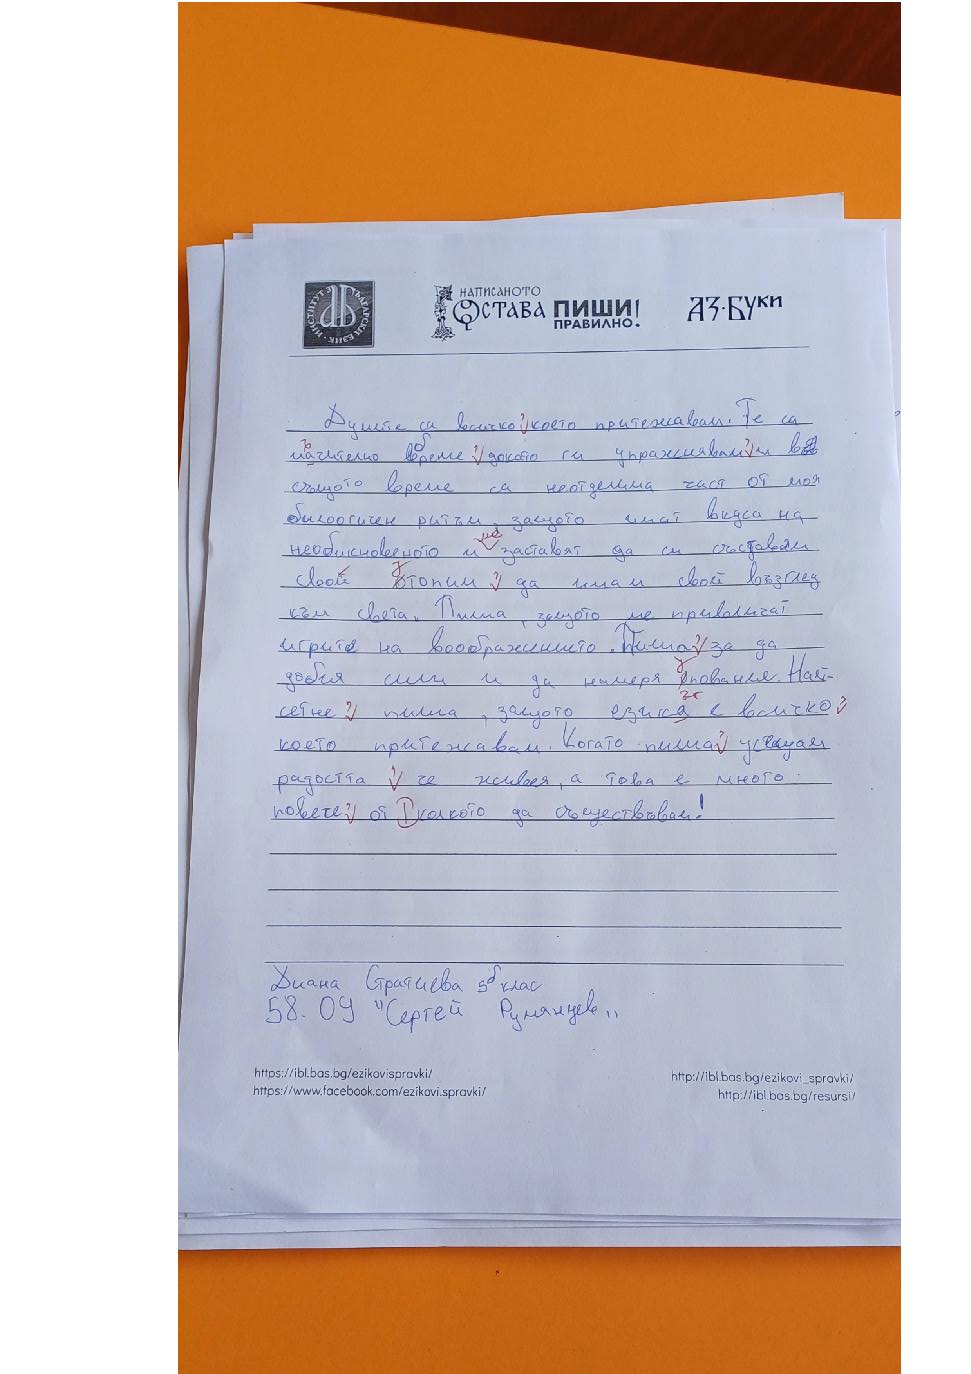 ИНСТИТУТ ЗА БЪЛГАРСКИ ЕЗИК
НАПИСАНОТО
ОСТАВА ПИШИ
ПРАВИЛНО!
АЗ·БУКИ
Думите са всичко, което притежавам. Те са
време, докато ги упражнявам, и в
същото време са неотделима част от моя
ритъм, защото имат вкуса на
и ме заставят да си съставям
свой да имам свой възглед
към света. Пиша, защото ме привличат
игрите на воображението. Пиша, за да
добия сили и да намеря упование. Най-
сетне, пиша, защото езика е всичко,
което притежавам. Когато пиша, усещам
радостта, че живея, а това е много
повече, от колкото да съществувам!
Диана Стратиева 5б клас
58. ОУ "Сергей Румянцев"
https://ibl.bas.bg/ezikovispravki/
http://ibl.bas.bg/ezikovi_spravki/
https://www.facebook.com/ezikovi.spravki/
http://ibl.bas.bg/resursi/